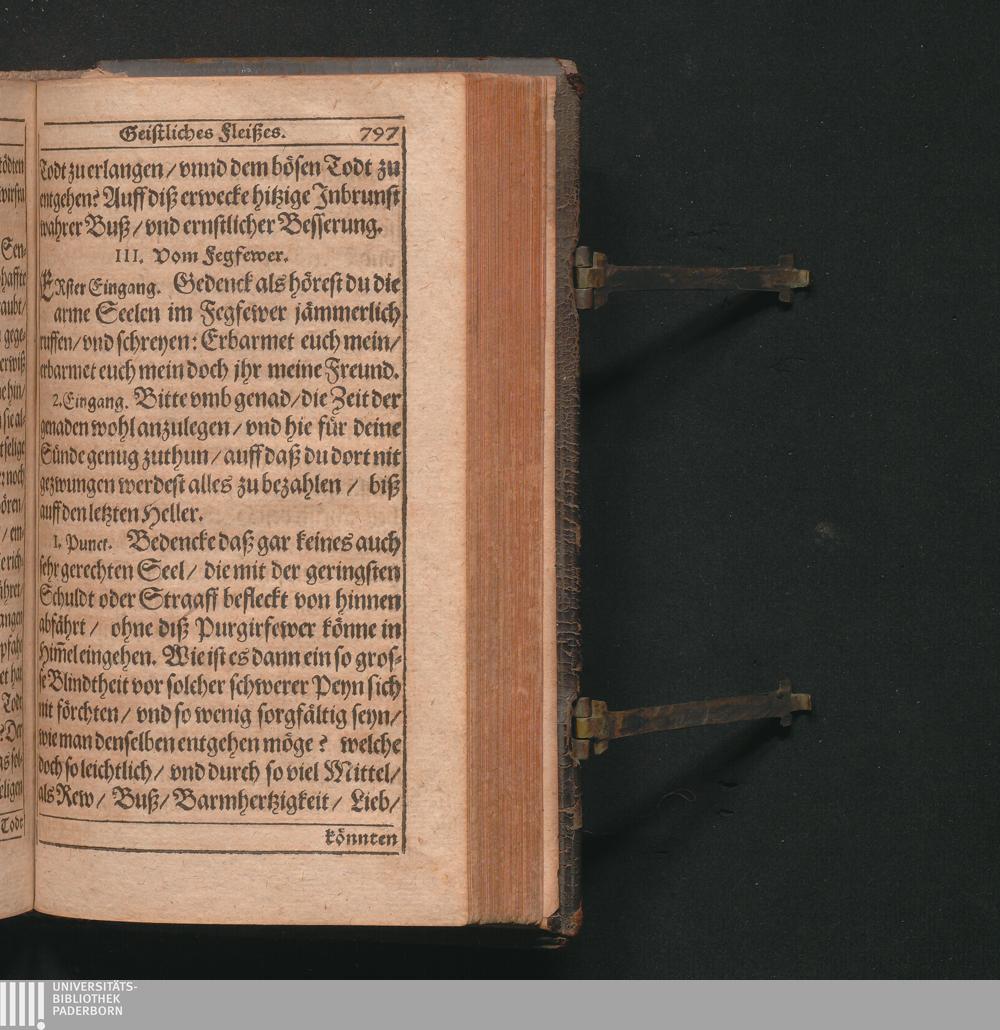 Geistliches Fleißes. 797
Todt zu erlangen / vnnd dem bösen Todt zu
entgehen? Auff diß erwecke hitzige Inbrunst
wahrer Buß / vnd ernstlicher Besserung.
III. Vom Fegfewer.
ERster Eingang. Gedenck als hörest du die
arme Seelen im Fegfewer jämmerlich
ruffen / vnd schreyen: Erbarmet euch mein /
erbarmet euch mein doch jhr meine Freund.
2. Eingang. Bitte vmb genad / die Zeit der
genaden wohl anzulegen / vnd hie für deine
Sünde genug zuthun / auff daß du dort nit
gezwungen werdest alles zu bezahlen / biß
auff den letzten Heller.
1. Punct. Bedencke daß gar keines auch
sehr gerechten Seel / die mit der geringsten
Schuldt oder Straaff befleckt von hinnen
abfährt / ohne diß Purgirfewer könne in
Him̄el eingehen. Wie ist es dann ein so gros-
se Blindtheit vor solcher schwerer Peyn sich
nit förchten / vnd so wenig sorgfältig seyn /
wie man denselben entgehen möge? welche
doch so leichtlich / vnd durch so viel Mittel /
als Rew / Buß / Barmhertzigkeit / Lieb /
könnten
UNIVERSITÄTS-
BIBLIOTHEK
PADERBORN